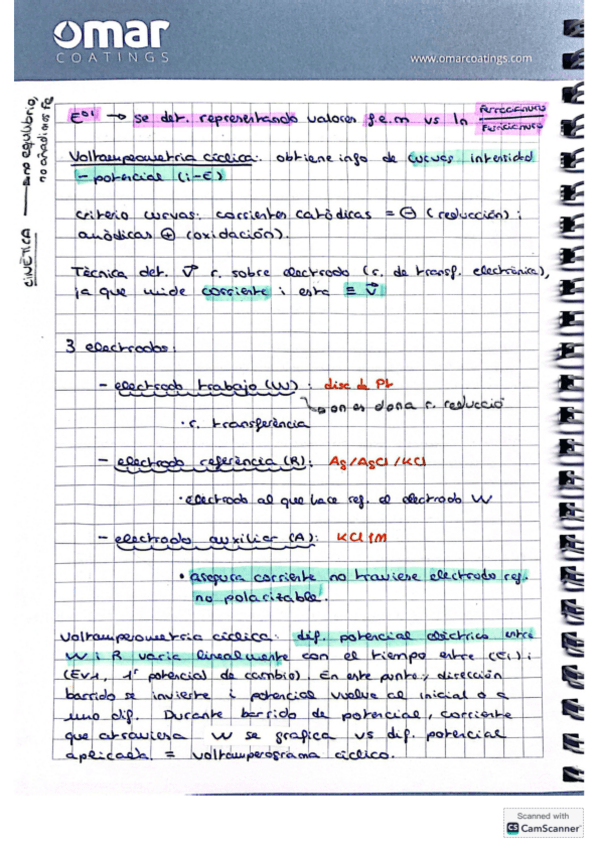 omar
COATINGS
www.omarcoatings.com
CINÈTICA → no equilibrio,
no añadimos Fe
E°' → se det. representando valores f.e.m vs ln ferrocianuro
ferricianuro
Voltamperometria cíclica: obtiene info de curvas intensidad
- potencial (i-E)
Criterio curvas: corrientes catódicas = ⊖ (reducción) i
anódicas ⊕ (oxidación).
Tècnica det. v⃗ r. sobre electrodo (r. de transf. electrònica),
ja que mide corriente i esta ≡ v⃗
3 electrodos:
- electrodo trabajo (W): disc de Pt
on es dona r. reducció
· r. transferència
- electrodo referència (R): Ag/AgCl/KCl
· electrodo al que hace ref. el electrodo W
- electrodo auxiliar (A): KCl 1M
· asegura corriente no traviese electrodo ref.
no polarizable.
Voltamperometria cíclica: dif. potencial eléctrico entre
W i R varia linealmente con el tiempo entre (Ei) i
(EV1, 1r potencial de cambio). En este punto, dirección
barrido se invierte i potencial vuelve al inicial o a
uno dif. Durante barrido de potencial, corriente
que atraviesa W se grafica vs dif. potencial
aplicada = voltamperograma cíclico.
Scanned with
CS CamScanner